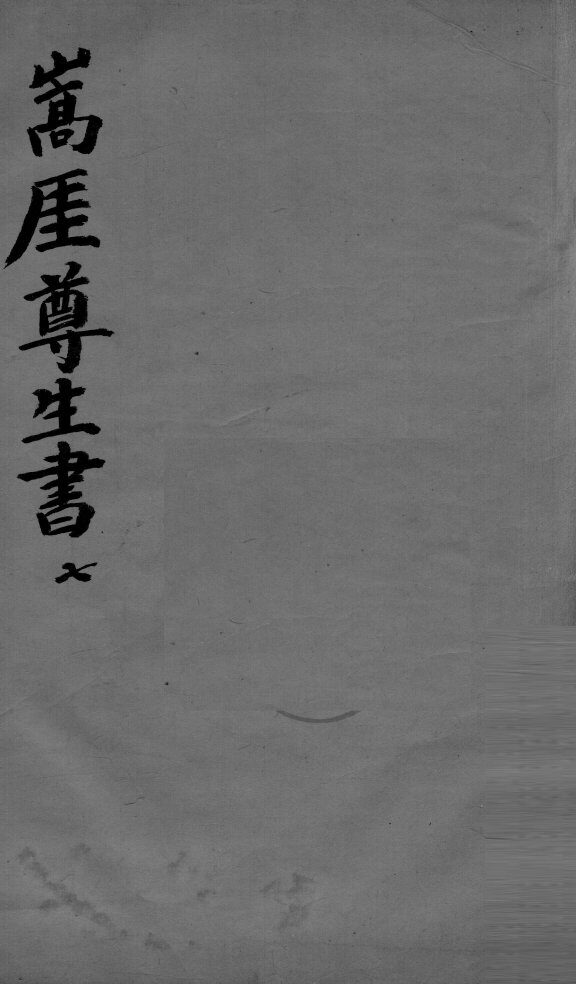 嵩厓尊生書 七